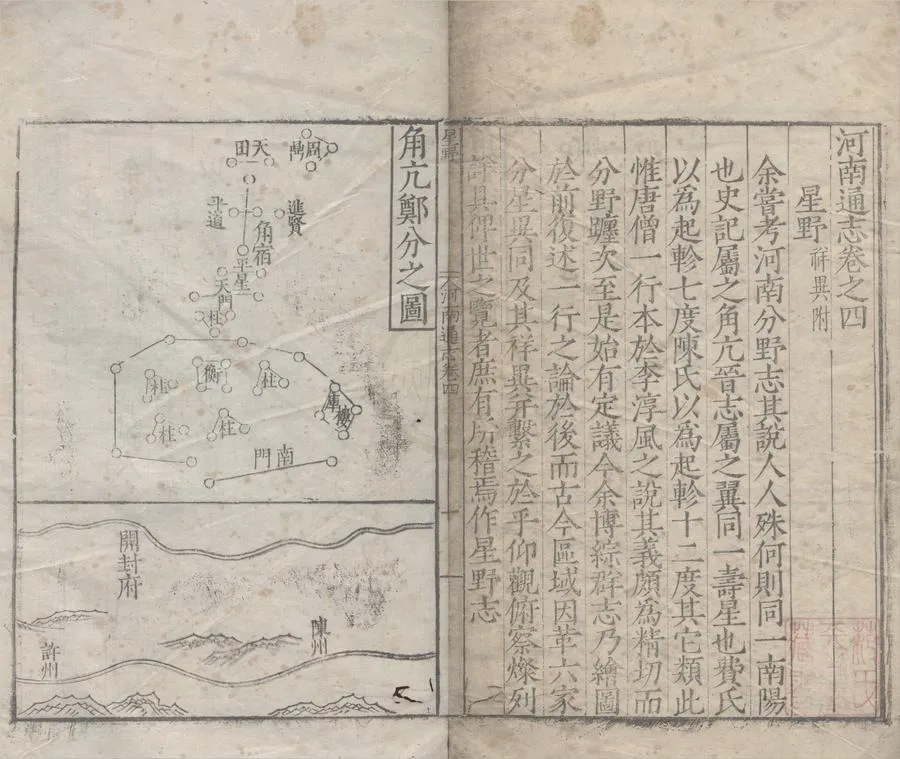 河南通志卷之四
星野 祥異附
余嘗考河南分野志其說人人殊何則同一南陽
也史記屬之角亢晉志屬之翼同一壽星也費氏
以為起軫七度陳氏以為起軫十二度其它類此
惟唐僧一行本於李淳風之說其義頗為精切而
分野躔次至是始有定議今余博綜群志乃繪圖
於前復述一行之論於後而古今區域因革六家
分星異同及其祥異并繫之於乎仰觀俯察燦列
諄具俾世之覽者庶有所稽焉作星野志
星野
河南通志卷四
一
角亢鄭分之圖
周鼎
天田
進賢
平道
角宿
平星
天門
柱
衡
柱
柱
庫樓
柱
柱
南門
開封府
陳州
許州